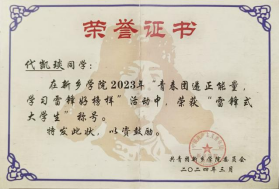 荣誉证书
代凯琰同学：
在新乡学院2023年“青春团通正能量，
学习雷锋好榜样”活动中，荣获“雷锋式
大学生”称号。
特发此状，以资鼓励。
共青团新乡学院委员会
二〇二四年三月